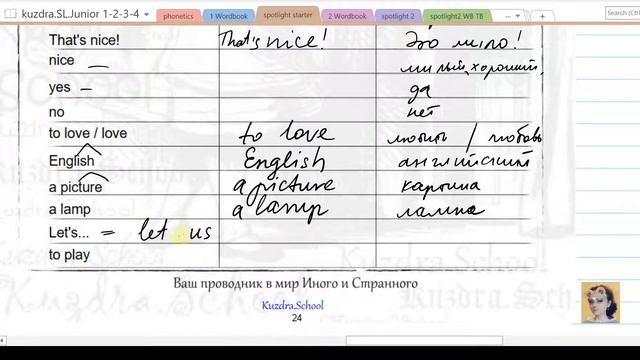 kuzdra.SL.Junior 1-2-3-4 phonetics 1 Wordbook spotlight starter 2 Wordbook spotlight 2 spotlight2 WB TB ... Search (Ctrl
That's nice! That's nice! Это мило!
nice милый, хороший,
yes да
no нет
to love / love to love любить / любовь
English English английский
a picture a picture картина
a lamp a lamp лампа
Let's... = let us
to play
Ваш проводник в мир Иного и Странного
Kuzdra.School
24